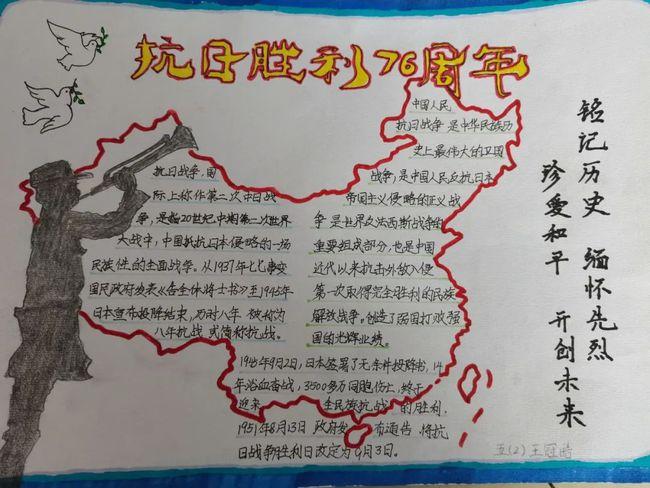 抗日胜利76周年
抗日战争,国
际上称作第二次中日战
争,是指20世纪中期第二次世界
大战中,中国抵抗日本侵略的一场
民族性的全面战争。从1937年七七事变
国民政府发表《告全体将士书》至1945年
日本宣布投降结束,历时八年 被称为
八年抗战 或简称抗战。
中国人民
抗日战争 是中华民族历
史上最伟大的卫国
战争,是中国人民反抗日本
帝国主义侵略的正义战
争 是世界反法西斯战争的
重要组成部分,也是中国
近代以来抗击外敌入侵
第一次取得完全胜利的民族
解放战争,创造了弱国打败强
国的光辉业绩。
1945年9月2日,日本签署了无条件投降书,14
年浴血奋战,3500多万同胞伤亡,终于
迎来 全民族抗战 的胜利.
1951年8月13日 政府发 布通告 将抗
日战争胜利日改定为9月3日。
铭记历史 缅怀先烈
珍爱和平 开创未来
五(2)王冠皓